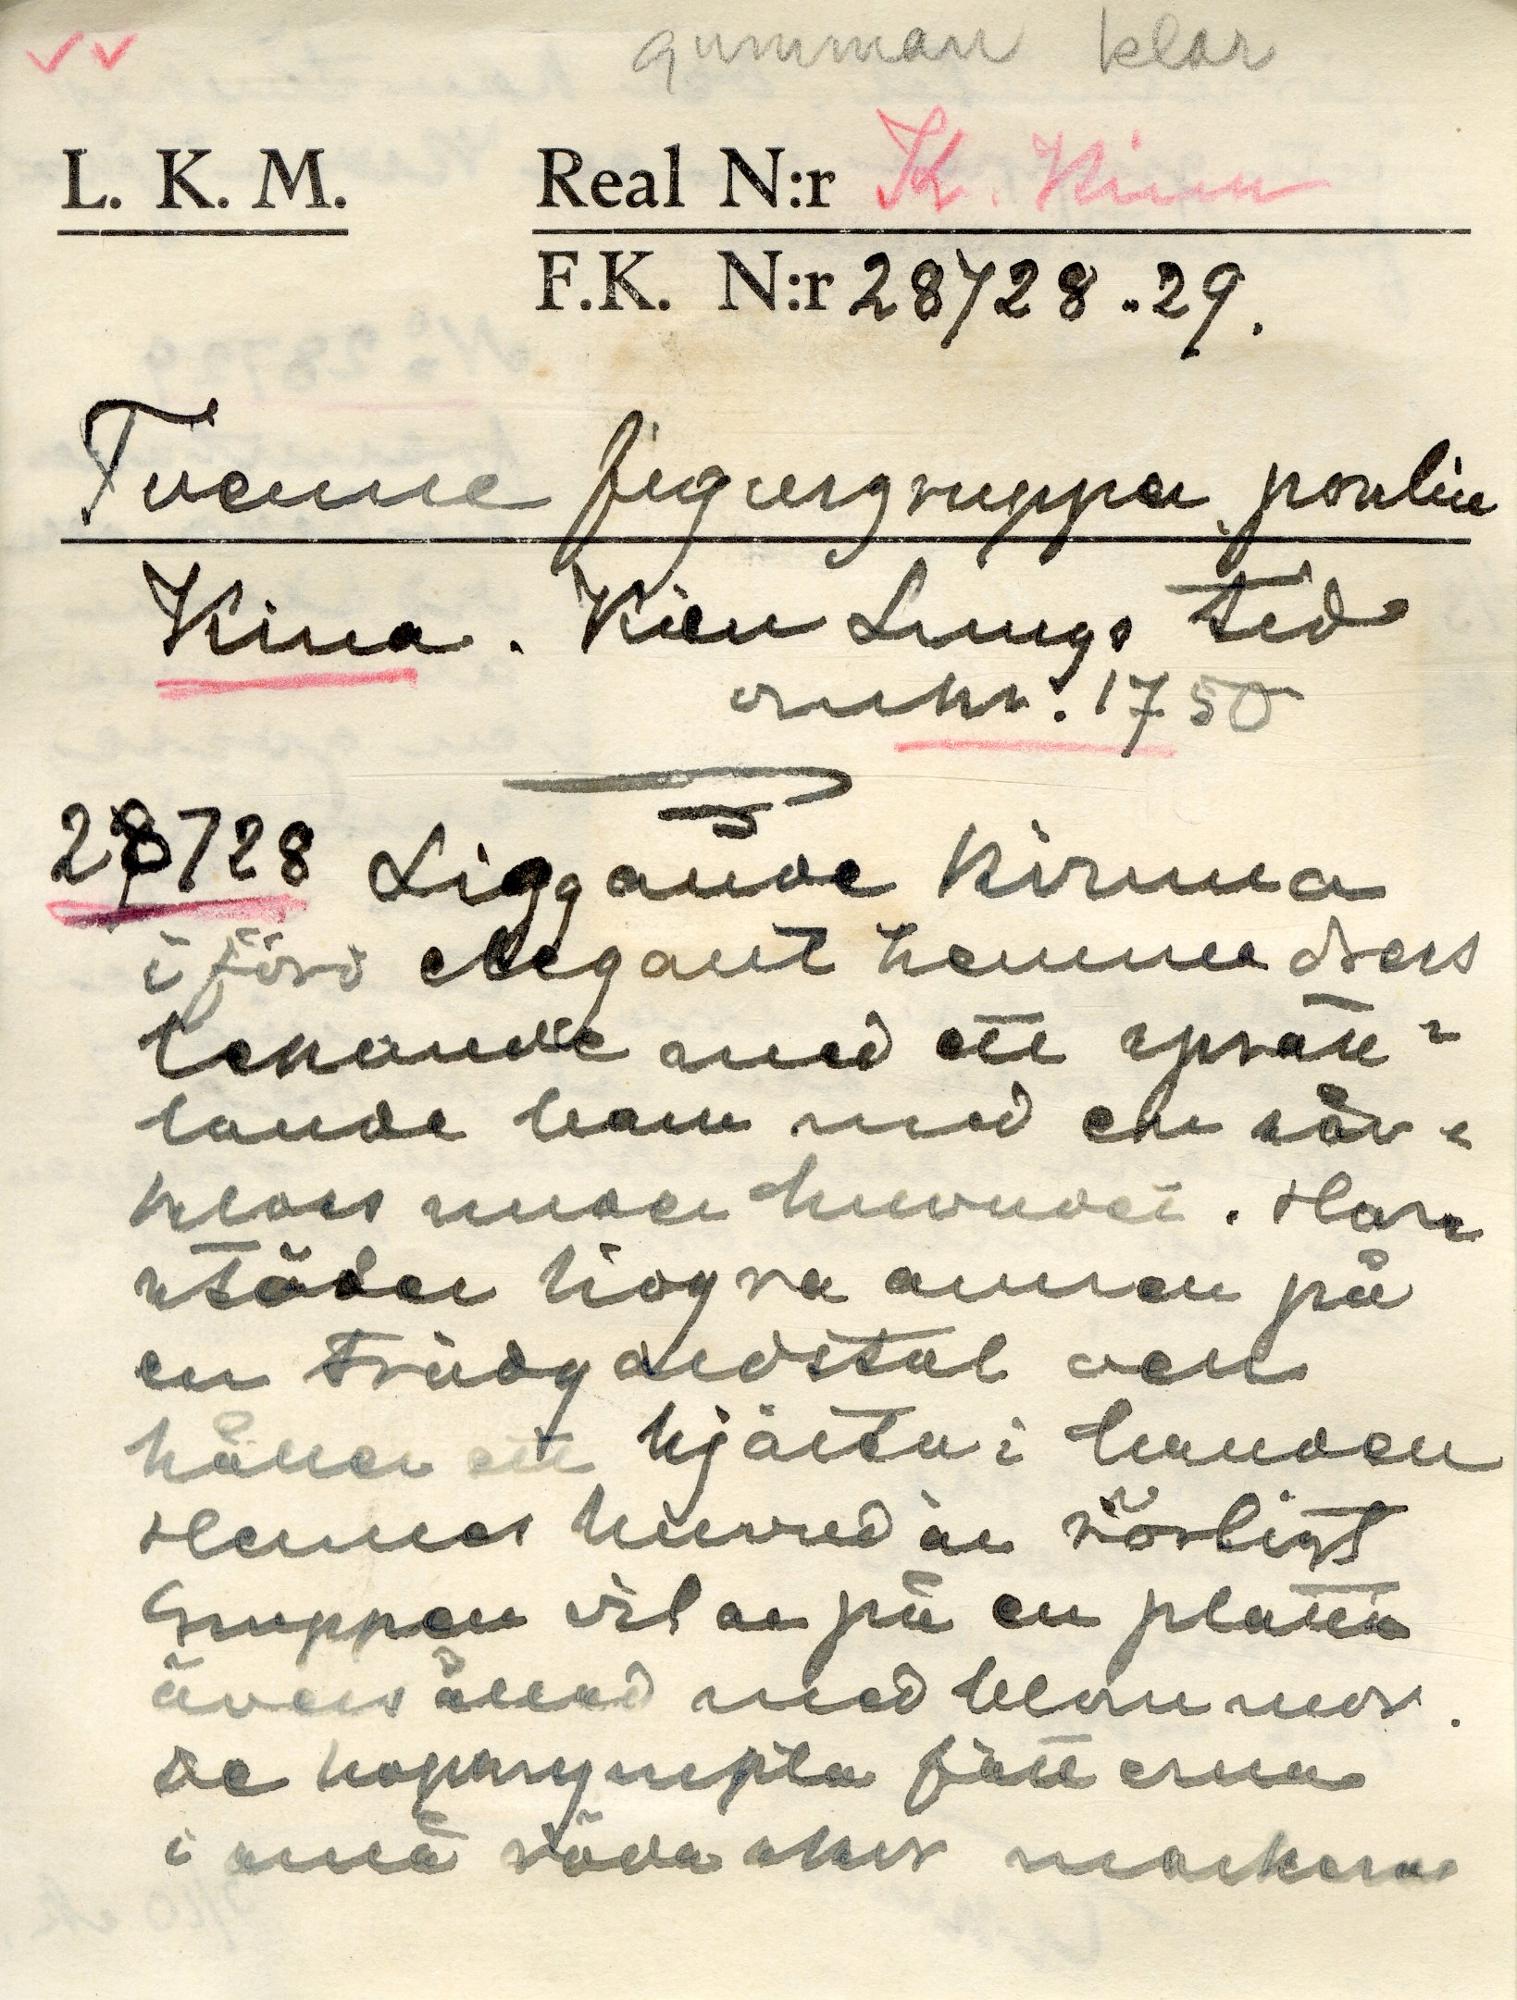 gumman klar
L. K. M. Real N:r K. Kina
F.K. N:r 28728-29.
Tvenne figurgrupper, porslin
Kina. Kien Lungs tid
omkr. 1750
28728 Liggande kvinna
iförd elegant hemmadress
lekande med ett sprätt-
lande barn med en
under huvudet. Hon
stöder högra armen på
en trädgårdstol och
håller ett hjärta i handen
Hennes huvud är rörligt
Gruppen vilar på en platta
översållad med blommor.
De hopkrympta fötterna
i små röda skor markera